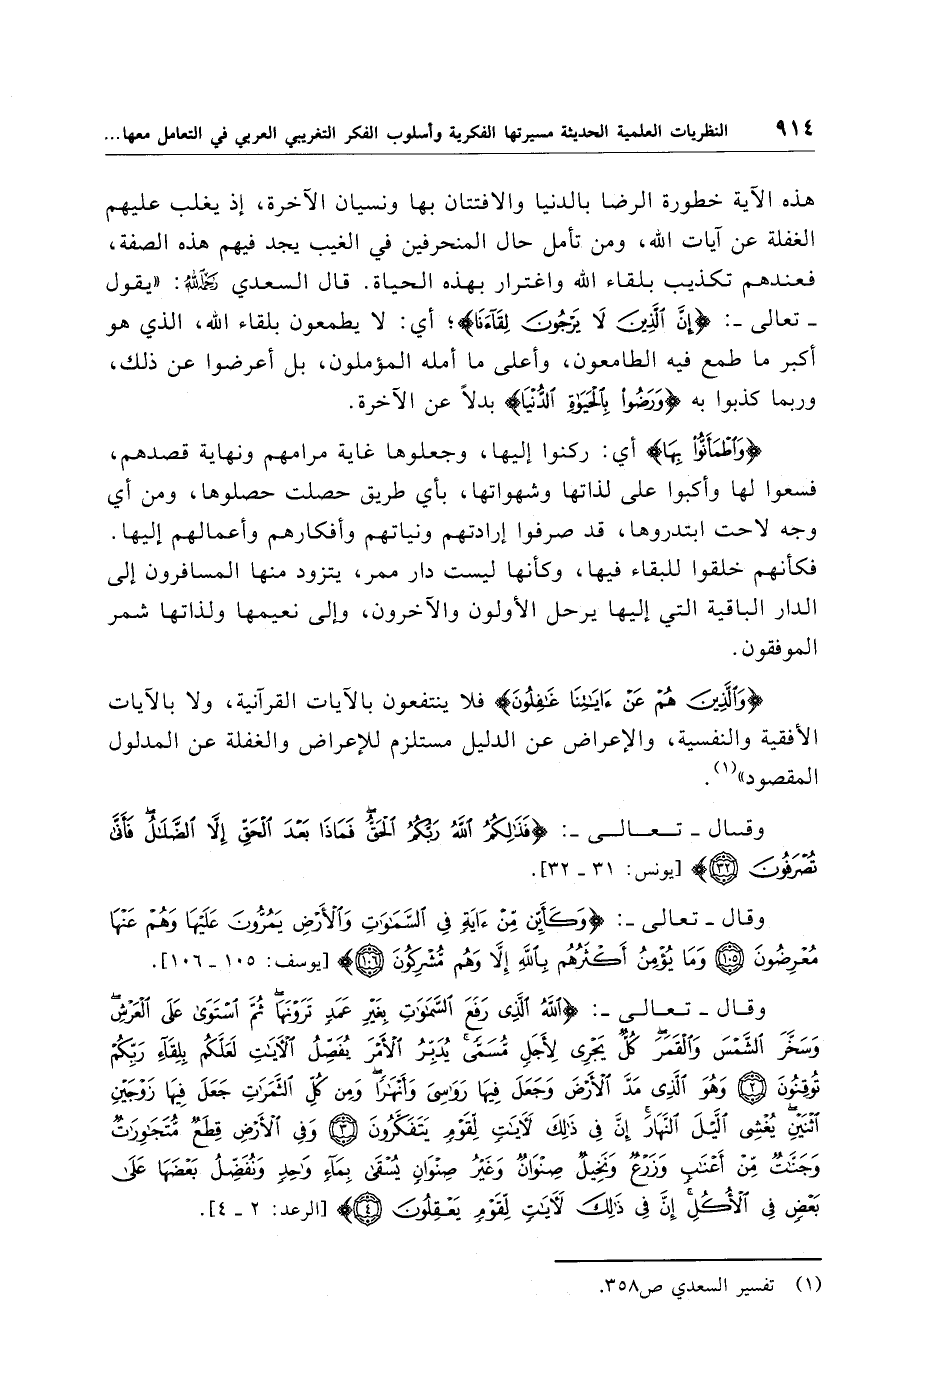 ٩١٤ النظريات العلمية الحديثة مسيرتها الفكرية وأسلوب الفكر التغريبي العربي في التعامل معها...
هذه الآية خطورة الرضا بالدنيا والافتتان بها ونسيان الآخرة، إذ يغلب عليهم
الغفلة عن آيات الله، ومن تأمل حال المنحرفين في الغيب يجد فيهم هذه الصفة،
فعندهم تكذيب بلقاء الله واغترار بهذه الحياة. قال السعدي رحمه الله: «يقول
ـ تعالى ـ: ﴿إِنَّ ٱلَّذِينَ لَا يَرۡجُونَ لِقَآءَنَا﴾؛ أي: لا يطمعون بلقاء الله، الذي هو
أكبر ما طمع فيه الطامعون، وأعلى ما أمله المؤملون، بل أعرضوا عن ذلك،
وربما كذبوا به ﴿وَرَضُواْ بِٱلۡحَيَوٰةِ ٱلدُّنۡيَا﴾ بدلاً عن الآخرة.
﴿وَٱطۡمَأَنُّواْ بِهَا﴾ أي: ركنوا إليها، وجعلوها غاية مرامهم ونهاية قصدهم،
فسعوا لها وأكبوا على لذاتها وشهواتها، بأي طريق حصلت حصلوها، ومن أي
وجه لاحت ابتدروها، قد صرفوا إرادتهم ونياتهم وأفكارهم وأعمالهم إليها.
فكأنهم خلقوا للبقاء فيها، وكأنها ليست دار ممر، يتزود منها المسافرون إلى
الدار الباقية التي إليها يرحل الأولون والآخرون، وإلى نعيمها ولذاتها شمر
الموفقون.
﴿وَٱلَّذِينَ هُمۡ عَنۡ ءَايَٰتِنَا غَٰفِلُونَ﴾ فلا ينتفعون بالآيات القرآنية، ولا بالآيات
الأفقية والنفسية، والإعراض عن الدليل مستلزم للإعراض والغفلة عن المدلول
المقصود»(١).
وقال ـ تعالى ـ: ﴿فَذَٰلِكُمُ ٱللَّهُ رَبُّكُمُ ٱلۡحَقُّۖ فَمَاذَا بَعۡدَ ٱلۡحَقِّ إِلَّا ٱلضَّلَٰلُۖ فَأَنَّىٰ
تُصۡرَفُونَ ٣٢﴾ [يونس: ٣١ ـ ٣٢].
وقال ـ تعالى ـ: ﴿وَكَأَيِّن مِّنۡ ءَايَةٖ فِي ٱلسَّمَٰوَٰتِ وَٱلۡأَرۡضِ يَمُرُّونَ عَلَيۡهَا وَهُمۡ عَنۡهَا
مُعۡرِضُونَ ١٠٥ وَمَا يُؤۡمِنُ أَكۡثَرُهُم بِٱللَّهِ إِلَّا وَهُم مُّشۡرِكُونَ ١٠٦﴾ [يوسف: ١٠٥ ـ ١٠٦].
وقال ـ تعالى ـ: ﴿ٱللَّهُ ٱلَّذِي رَفَعَ ٱلسَّمَٰوَٰتِ بِغَيۡرِ عَمَدٖ تَرَوۡنَهَاۖ ثُمَّ ٱسۡتَوَىٰ عَلَى ٱلۡعَرۡشِۖ
وَسَخَّرَ ٱلشَّمۡسَ وَٱلۡقَمَرَۖ كُلّٞ يَجۡرِي لِأَجَلٖ مُّسَمّٗىۚ يُدَبِّرُ ٱلۡأَمۡرَ يُفَصِّلُ ٱلۡأٓيَٰتِ لَعَلَّكُم بِلِقَآءِ رَبِّكُمۡ
تُوقِنُونَ ٢ وَهُوَ ٱلَّذِي مَدَّ ٱلۡأَرۡضَ وَجَعَلَ فِيهَا رَوَٰسِيَ وَأَنۡهَٰرٗاۖ وَمِن كُلِّ ٱلثَّمَرَٰتِ جَعَلَ فِيهَا زَوۡجَيۡنِ
ٱثۡنَيۡنِۖ يُغۡشِي ٱلَّيۡلَ ٱلنَّهَارَۚ إِنَّ فِي ذَٰلِكَ لَأٓيَٰتٖ لِّقَوۡمٖ يَتَفَكَّرُونَ ٣ وَفِي ٱلۡأَرۡضِ قِطَعٞ مُّتَجَٰوِرَٰتٞ
وَجَنَّٰتٞ مِّنۡ أَعۡنَٰبٖ وَزَرۡعٞ وَنَخِيلٞ صِنۡوَانٞ وَغَيۡرُ صِنۡوَانٖ يُسۡقَىٰ بِمَآءٖ وَٰحِدٖ وَنُفَضِّلُ بَعۡضَهَا عَلَىٰ
بَعۡضٖ فِي ٱلۡأُكُلِۚ إِنَّ فِي ذَٰلِكَ لَأٓيَٰتٖ لِّقَوۡمٖ يَعۡقِلُونَ ٤﴾ [الرعد: ٢ ـ ٤].
(١) تفسير السعدي ص٣٥٨.